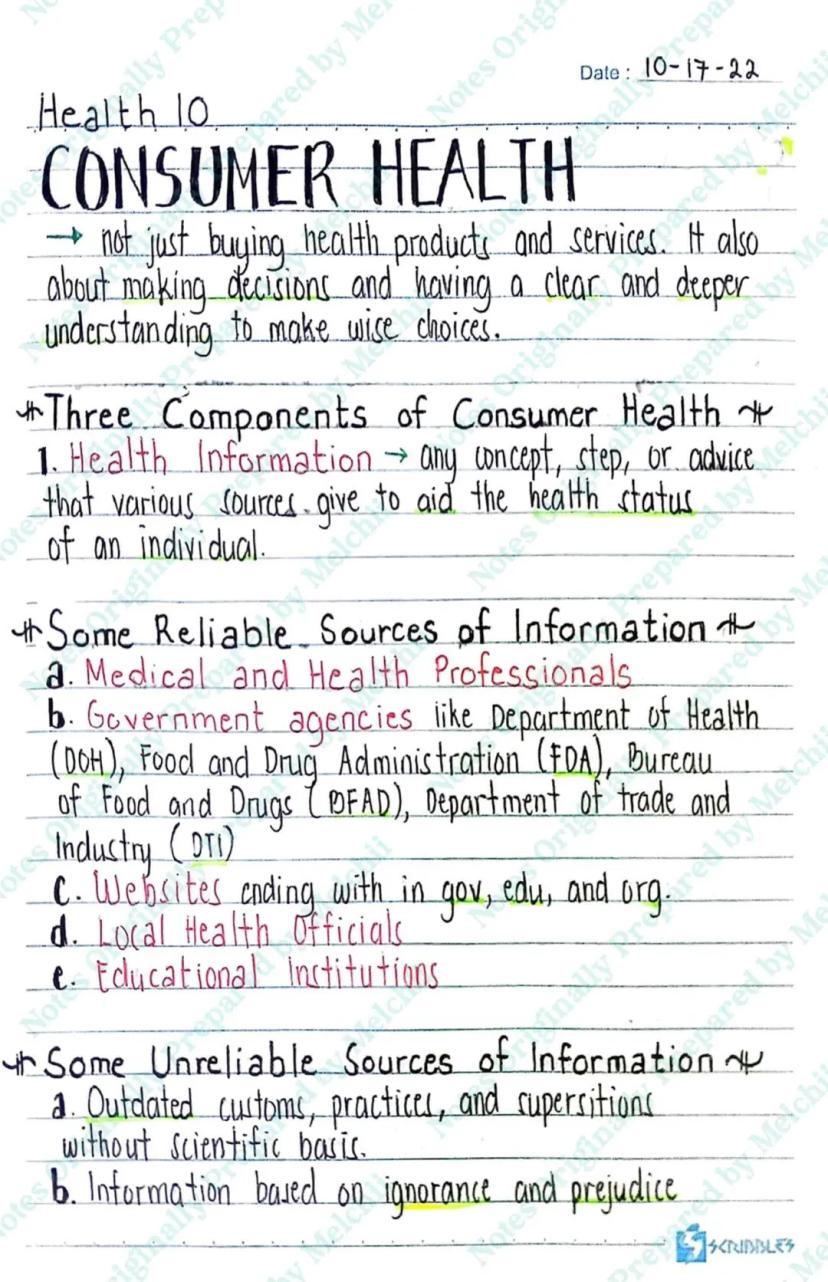 Date : 10-17-22
Health 10
CONSUMER HEALTH
→ not just buying health products and services. It also
about making decisions and having a clear and deeper
understanding to make wise choices.
*Three Components of Consumer Health *
1. Health Information → any concept, step, or advice
that various sources give to aid the health status
of an individual.
*Some Reliable Sources of Information *
a. Medical and Health Professionals
b. Government agencies like Department of Health
(DOH), Food and Drug Administration (FDA), Bureau
of Food and Drugs (BFAD), Department of trade and
Industry (DTI)
c. Websites ending with in gov, edu, and org.
d. Local Health Officials
e. Educational Institutions
*Some Unreliable Sources of Information *
a. Outdated customs, practices, and supersitions
without scientific basis.
b. Information based on ignorance and prejudice
SCRIBBLES
Notes Originally Prepared by Melchii